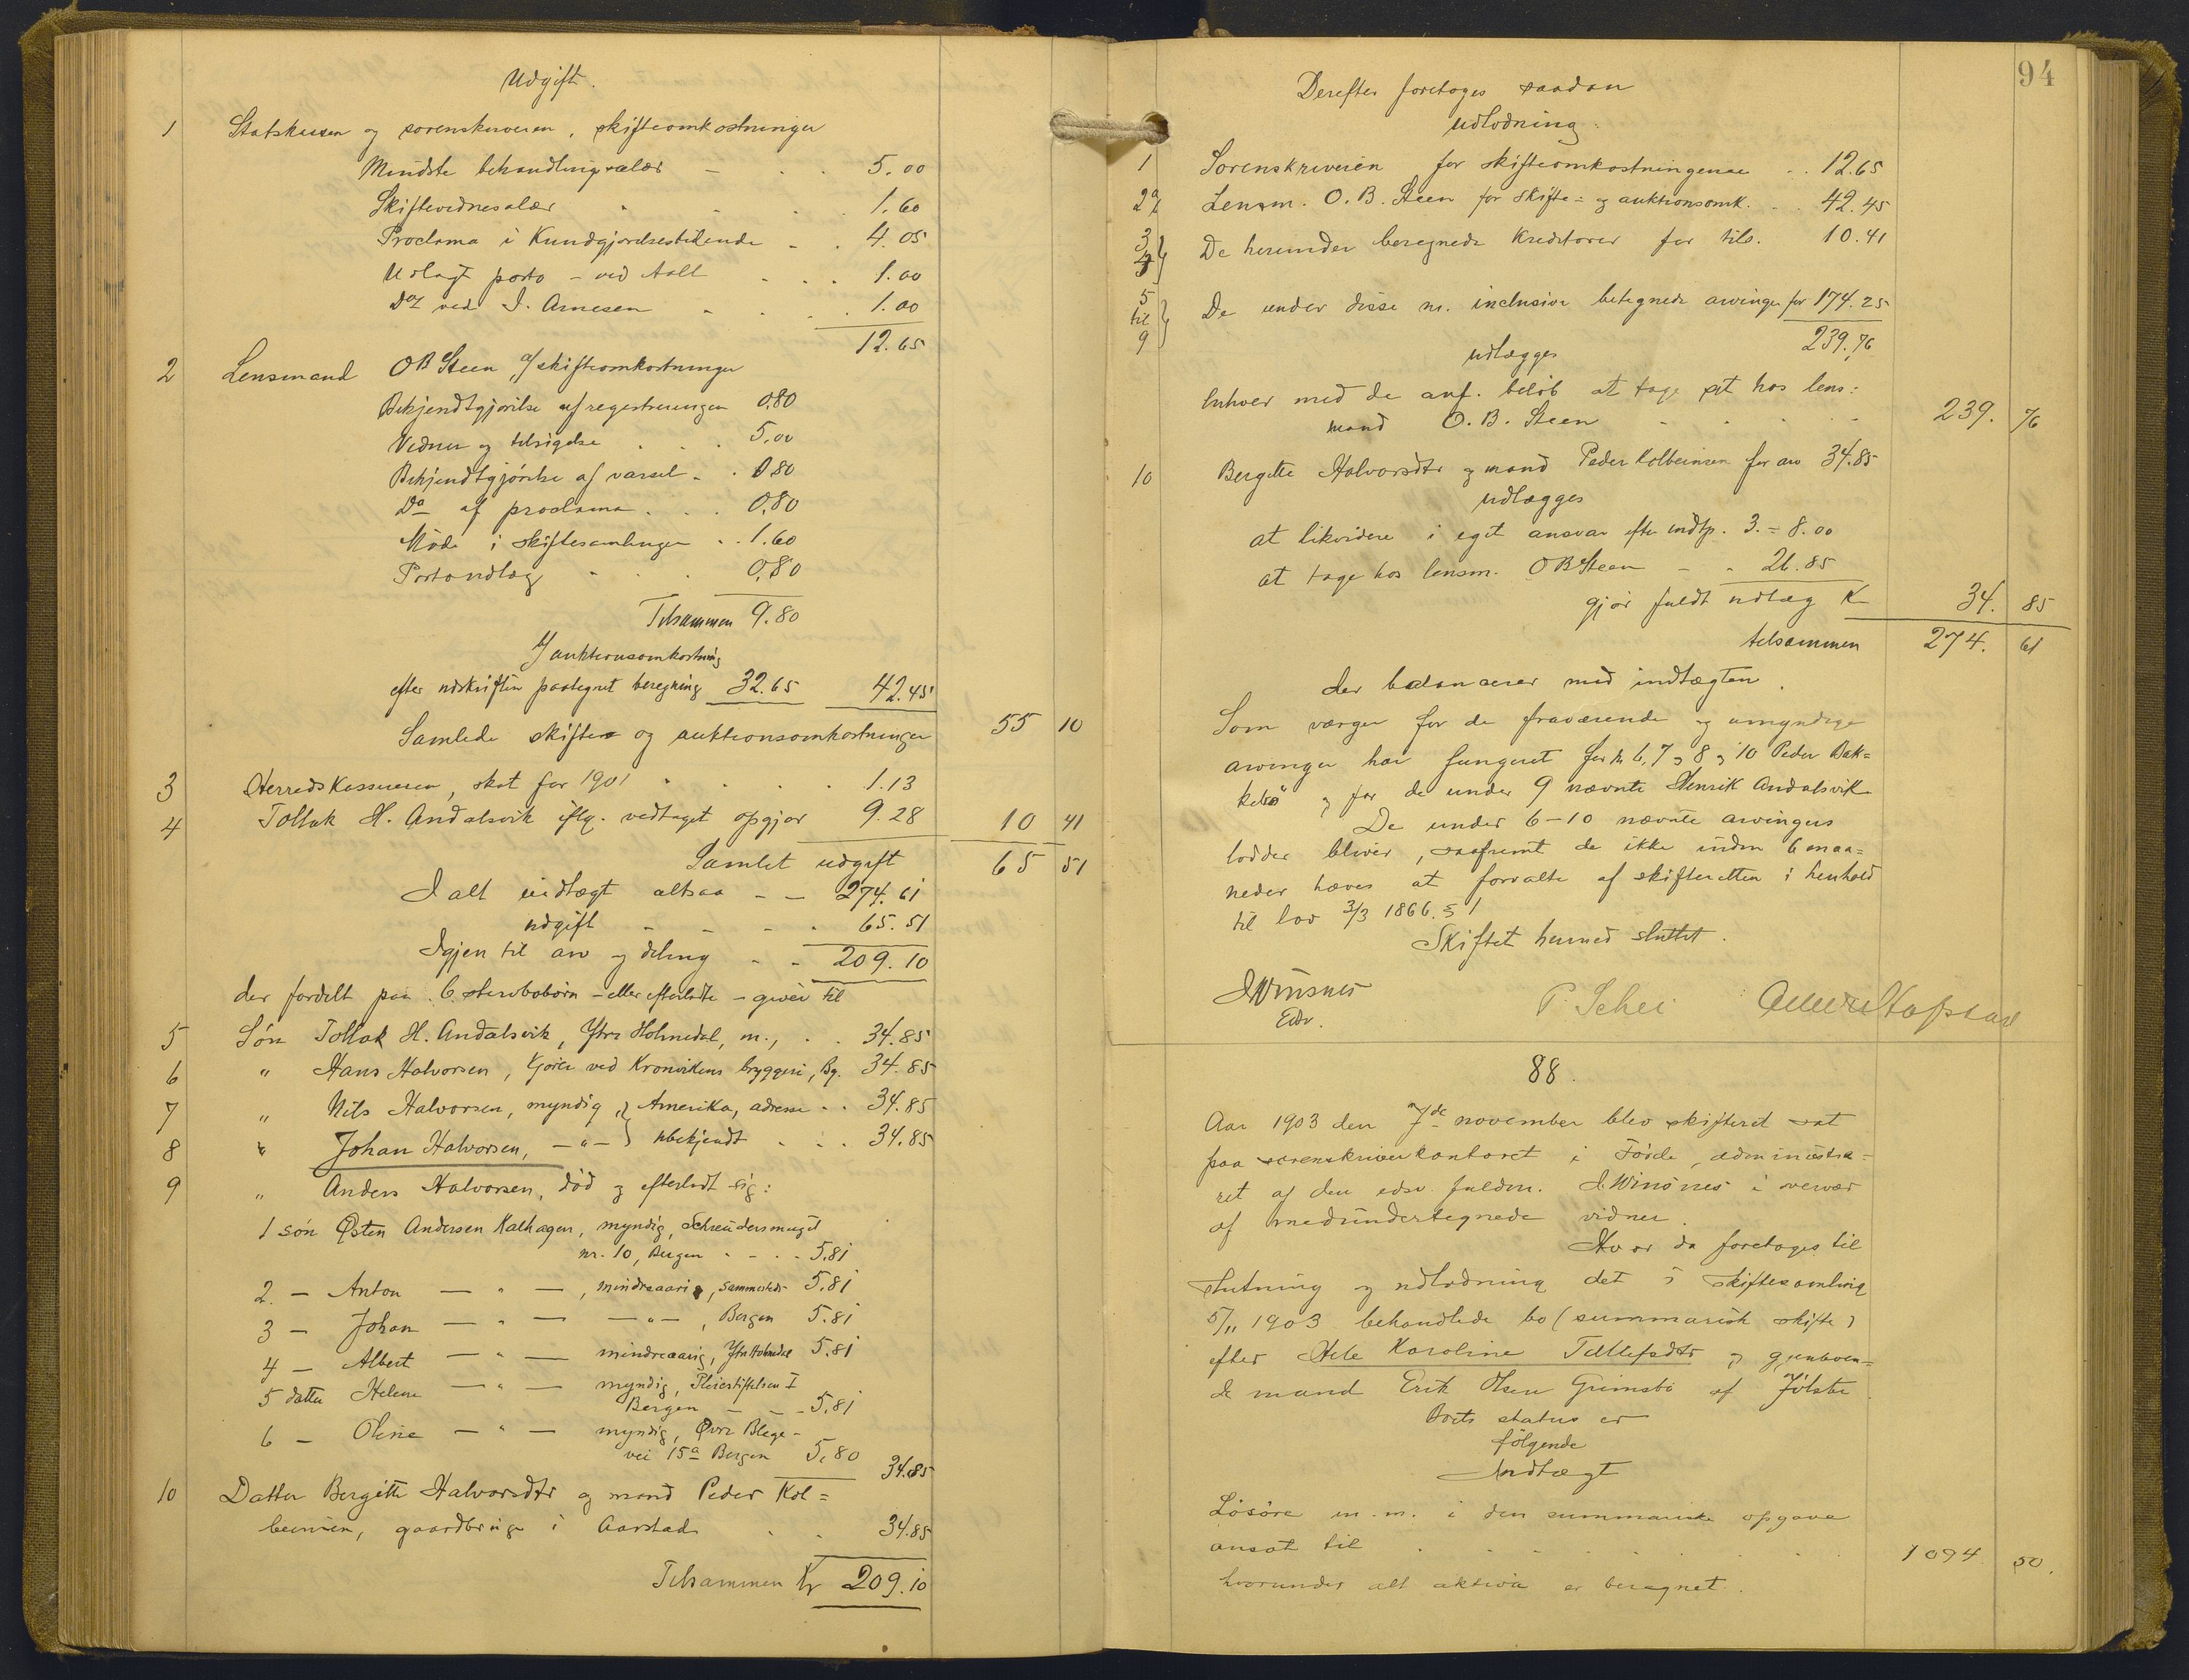 Udgift.
1 Statskassen og sorenskriveren, skifteomkostninger
Mindste behandlingssalær - . . 5.00
Skiftevidnesalær . . . . 1.60
Proclama i Kundgjørelsestidende - . 4.05
Udlagt porto - ved Aall . . . 1.00
Do ved J. Arnesen . . . . 1.00
12.65
2 Lensmand OB Steen a/ skifteomkostninger
Bekjendtgjørelse af registreringen 0.80
Vidner og tilsigelse . . . 5.00
Bekjendtgjørelse af varsel - . 0.80
Do af proclama . . . 0.80
Møde i skiftesamlingen . . 1.60
Portoudlæg . . . 0.80
Tilsammen 9.80
b/ auktionsomkostning
efter udskriften paategnet beregning 32.65 42.45
Samlede skifte og auktionsomkostninger 55 10
3 Herredskassereren, skat for 1901 . . . . 1.13
4 Tollak H. Andalsvik iflg. vedtaget opgjør 9.28 10 41
Samlet udgift 65 51
I alt indtægt altsaa - - 274.61
udgift - - - . 65.51
Igjen til arv og deling - - 209.10
der fordelt paa 6 stervbobørn - eller efterladte - giver til
5 Søn Tollak H. Andalsvik, Ytre Holmedal, m., . . 34.85
6 " Hans Halvorsen, kjører ved Kronvikens bryggeri, Bg. 34.85
7 " Nils Halvorsen, myndig, } Amerika, adresse . . 34.85
8 " Johan Halvorsen, - " - } ubekjendt . . . 34.85
9 " Anders Halvorsen, død og efterladt sig:
1 søn Østen Andersen Kalhagen, myndig,
nr. 10, Bergen - - - . 5.81
2 - Anton - " - , mindreaarig, sammesteds 5.81
3 - Johan - " - - " - , Bergen 5.81
4 - Albert - " - mindreaarig, Ytre Holmedal 5.81
5 datter Helene - " - myndig, Pleiestiftelsen I
Bergen - - - 5.81
6 - Oline - " - myndig, Øvre Blege-
vei 15a Bergen 5.80 34.85
10 Datter Bergitte Halvorsdtr og mand Peder Kol=
beinsen, gaardbruger i Aarstad . . 34.85
Tilsammen Kr 209.10
94
Derefter foretoges saadan
udlodning:
1 Sorenskriveren for skifteomkostningerne . . 12.65
2 Lensm. O. B. Steen for skifte= og auktionsomk. . . 42.45
3 4 } De herunder beregnede kreditorer for tils. 10.41
5 til 9 } De under disse nr. inclusive betegnede arvinger for 174.25
239.76
udlægges
enhver med de anf. beløb at tage sit hos lens=
mand O. B. Steen - - - - 239. 76
10 Bergitte Halvorsdtr og mand Peder Kolbeinsen for arv 34.85
udlægges
at likvidere i eget ansvar efter indtp. 3. = 8.00
at tage hos lensm. OB Steen - - 26.85
gjør fuldt udlæg K 34. 85
tilsammen 274. 61
der balancerer med indtægten.
Som værger for de fraværende og umyndige
arvinger har fungeret for nr 6, 7 og 8 og 10 Peder Bak=
kebø og for de under 9 nævnte Henrik Andalsvik
De under 6-10 nævnte arvingers
lodder bliver, saafremt de ikke inden 6 maa=
neder hæves at forvalte af skifteretten i henhold
til lov 3/3 1866 § 1
Skiftet hermed sluttet.
J Winsnes
Edv.
P. Schei
88.
Aar 1903 den 7de november blev skifteret sat
paa sorenskriverkontoret i Førde, administre=
ret af den edsv. fuldm. J. Winsnes i overvær
af medundertegnede vidner.
Hvor da foretoges til
slutning og udlodning det i skiftesamling
5/11 1903 behandlede bo (summarisk skifte)
efter Karoline Tollefsdtr og gjenleven=
de mand Erik Olsen Grimsbø af Jølster.
Boets status er
følgende
Indtægt
Løsøre m.m. i den summariske opgave
ansat til . . . . . . . 1094 50.
hvorunder alt aktiva er beregnet.